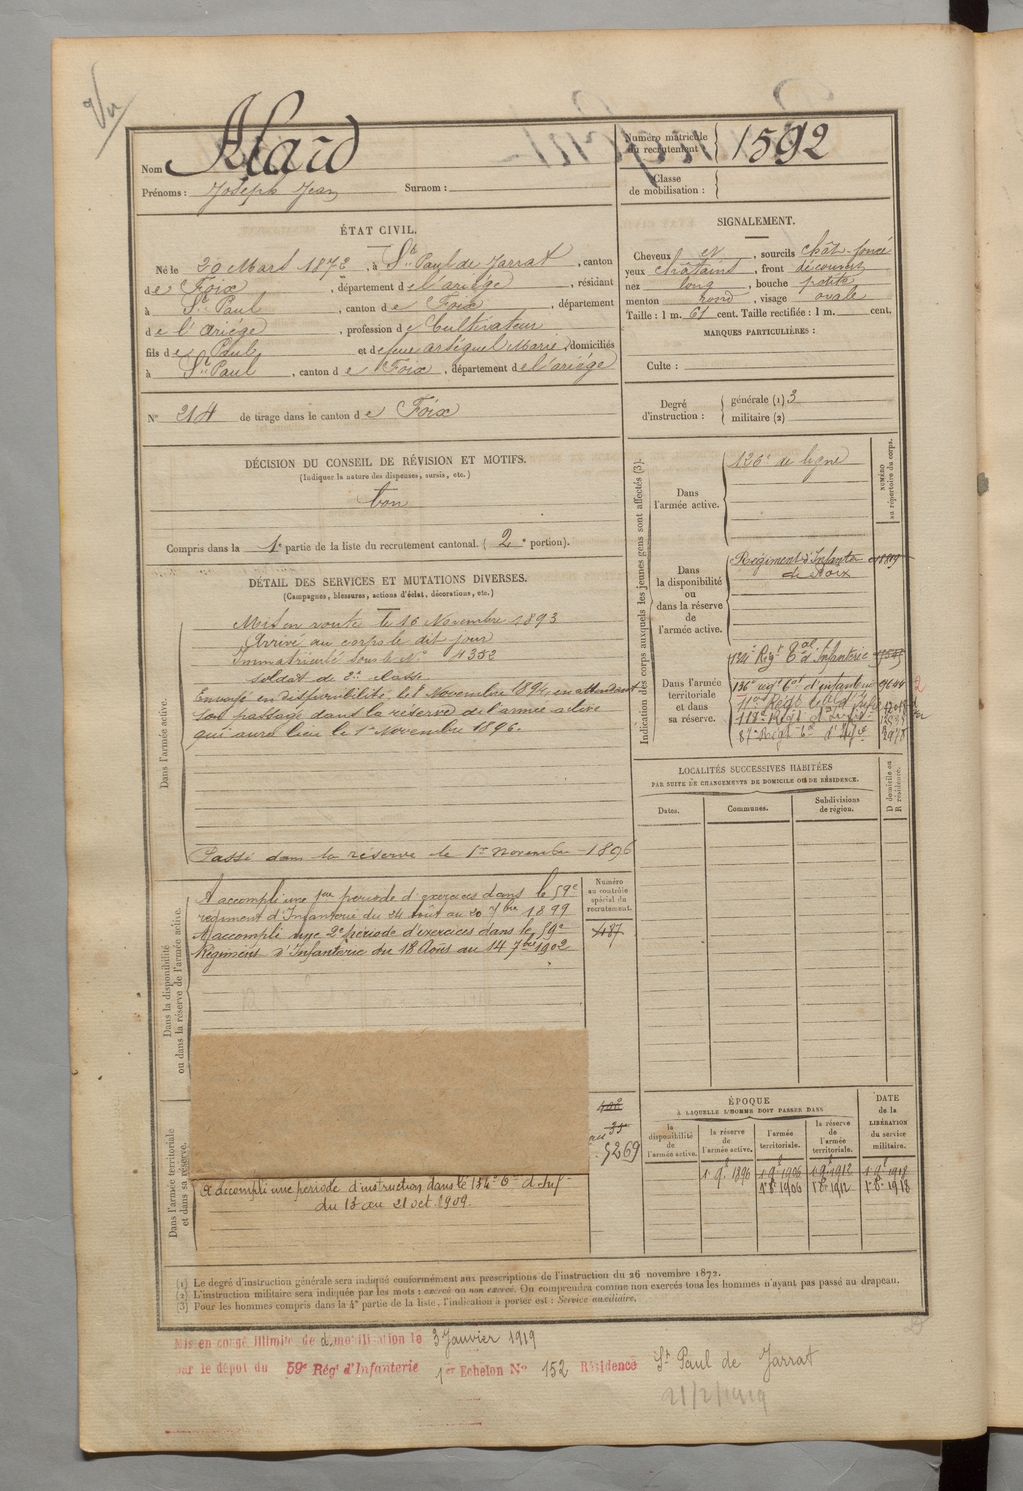 Vu
Nom Alard
Prénoms : Joseph Jean Surnom :
Numéro matricule du recrutement 1592
Classe de mobilisation :
ÉTAT CIVIL.
Né le 20 Mars 1872, à St Paul de Jarrat, canton
de Foix, département de l'ariége, résidant
à St Paul, canton de Foix, département
de l'ariége, profession de Cultivateur
fils de Paul et de feue arséguel Marie, domiciliés
à St Paul, canton de Foix, département de l'ariége
N° 214 de tirage dans le canton de Foix
SIGNALEMENT.
Cheveux et, sourcils chât-foncé
yeux châtains, front découvert
nez long, bouche petite
menton rond, visage ovale
Taille : 1 m. 61 cent. Taille rectifiée : 1 m. cent.
MARQUES PARTICULIÈRES :
Culte :
Degré d'instruction : générale (1) 3
militaire (2)
DÉCISION DU CONSEIL DE RÉVISION ET MOTIFS.
(Indiquer la nature des dispenses, sursis, etc.)
bon
Compris dans la 1e partie de la liste du recrutement cantonal. ( 2e portion).
DÉTAIL DES SERVICES ET MUTATIONS DIVERSES.
(Campagnes, blessures, actions d'éclat, décorations, etc.)
Dans l'armée active.
Mis en route le 16 Novembre 1893
Arrivé au corps le dit jour
Immatriculé sous le N° 4352
soldat de 2e classe
Envoyé en disponibilité le 1 Novembre 1894, en attendant
son passage dans la réserve de l'armée active
qui aura lieu le 1er Novembre 1896.
Passé dans la réserve le 1er Novembre 1896
Dans la disponibilité
ou dans la réserve de l'armée active.
A accompli une 1ere periode d'exercices dans le 59e
régiment d'Infanterie du 24 Août au 20 7bre 1899
A accompli une 2e période d'exercices dans le 59e
Régiment d'Infanterie du 18 Août au 14 7bre 1902
Numéro au contrôle spécial du recrutement.
487
Dans l'armée territoriale
et dans sa réserve.
5269
A accompli une periode d'instruction dans le 134e
du 13 au 21 oct. 1909.
Indication des corps auxquels les jeunes gens sont affectés (3).
NUMÉRO au répertoire du corps.
Dans l'armée active.
126e de ligne
Dans la disponibilité ou dans la réserve de l'armée active.
Régiment d'Infanterie
de Foix
Dans l'armée territoriale et dans sa réserve.
136e regt tal d'infanterie
118e Regt
87e Regt
LOCALITÉS SUCCESSIVES HABITÉES
PAR SUITE DE CHANGEMENTS DE DOMICILE OU DE RÉSIDENCE.
Dates.
Communes.
Subdivisions de région.
D domicile ou R résidence.
ÉPOQUE
À LAQUELLE L'HOMME DOIT PASSER DANS
la disponibilité de l'armée active.
la réserve de l'armée active.
l'armée territoriale.
la réserve de l'armée territoriale.
DATE de la LIBÉRATION du service militaire.
1 9e 1896
1 9e 1906
1 9e 1912
1 9e 1918
1er 8e 1906
1er 8e 1912
1er 8e 1918
(1) Le degré d'instruction générale sera indiqué conformément aux prescriptions de l'instruction du 26 novembre 1872.
(2) L'instruction militaire sera indiquée par les mots : exercé ou non exercé. On comprendra comme non exercés tous les hommes n'ayant pas passé au drapeau.
(3) Pour les hommes compris dans la 4e partie de la liste, l'indication à porter est : Service auxiliaire.
Mis en congé illimité de démobilisation le 3 Janvier 1919
par le dépôt du 59e Régt d'Infanterie 1er Echelon N° 152 Résidence St Paul de Jarrat
21/2/1919